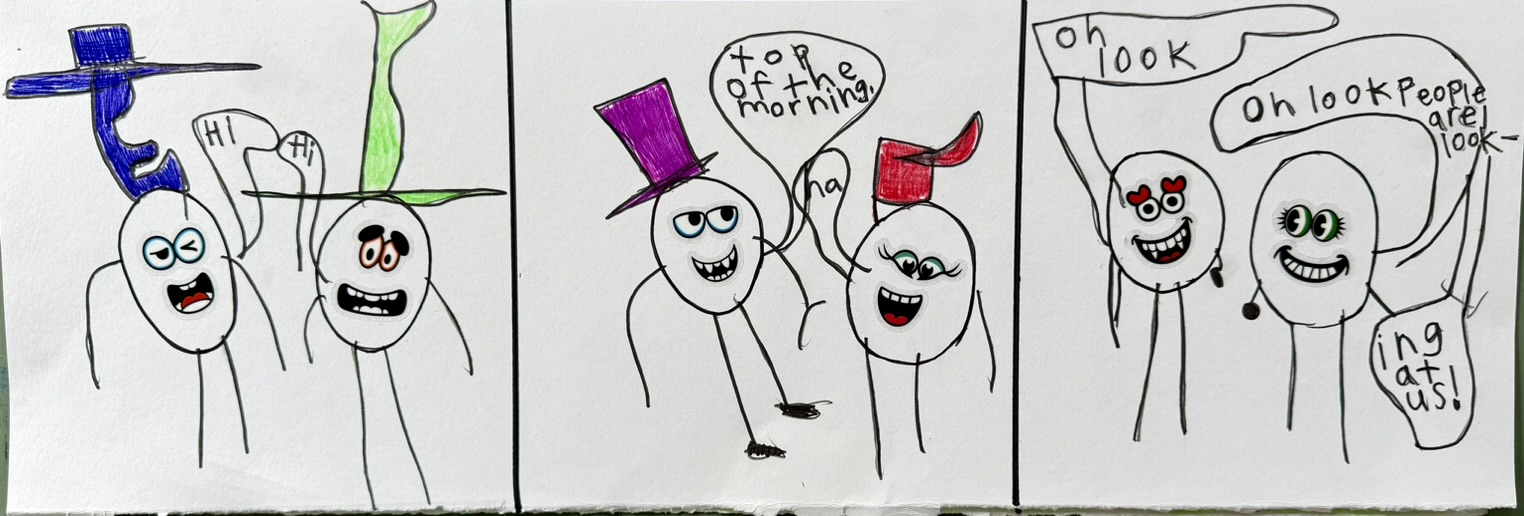 HI
Hi
top
of the
morning.
ha
oh
look
Oh look People
are
look-
ing
at
us!